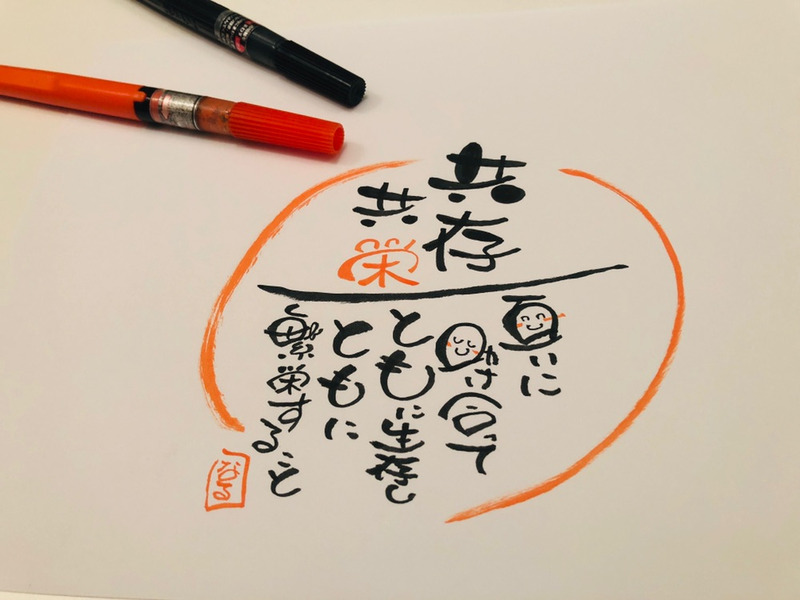 共存
共栄
互いに
助け合って
ともに生存し
ともに
繁栄すること
なる